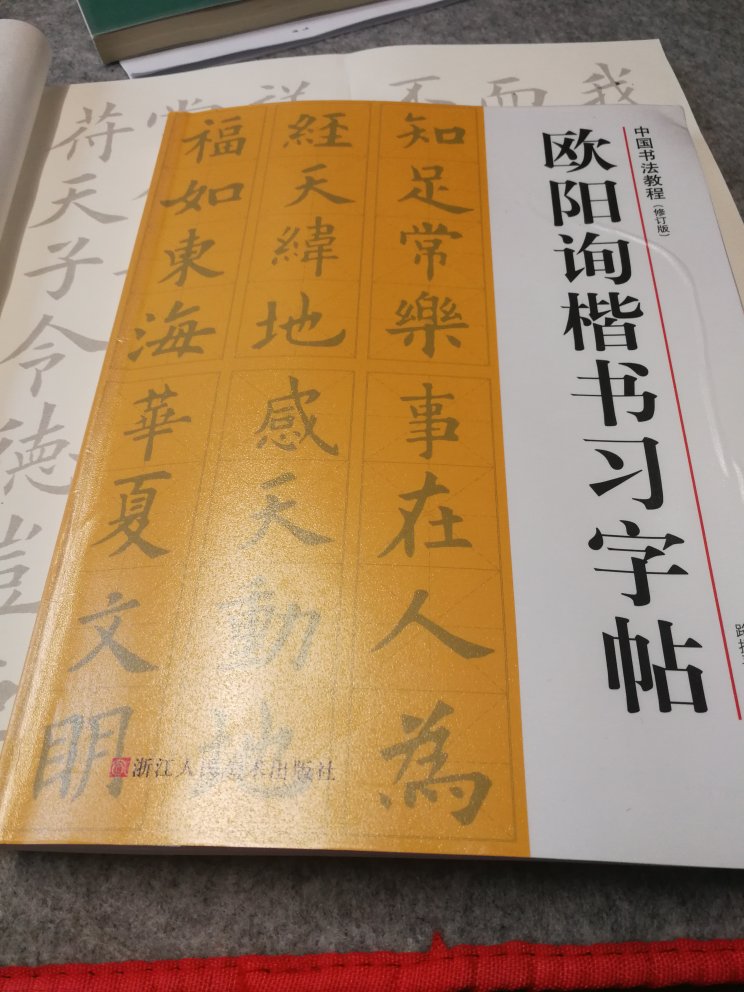 中国书法教程（修订版）
欧阳询楷书习字帖
知足常樂
事在人為
經天緯地
感天動地
福如東海
華夏文眀
浙江人民美术出版社
我
而
不
苻天子令德豈